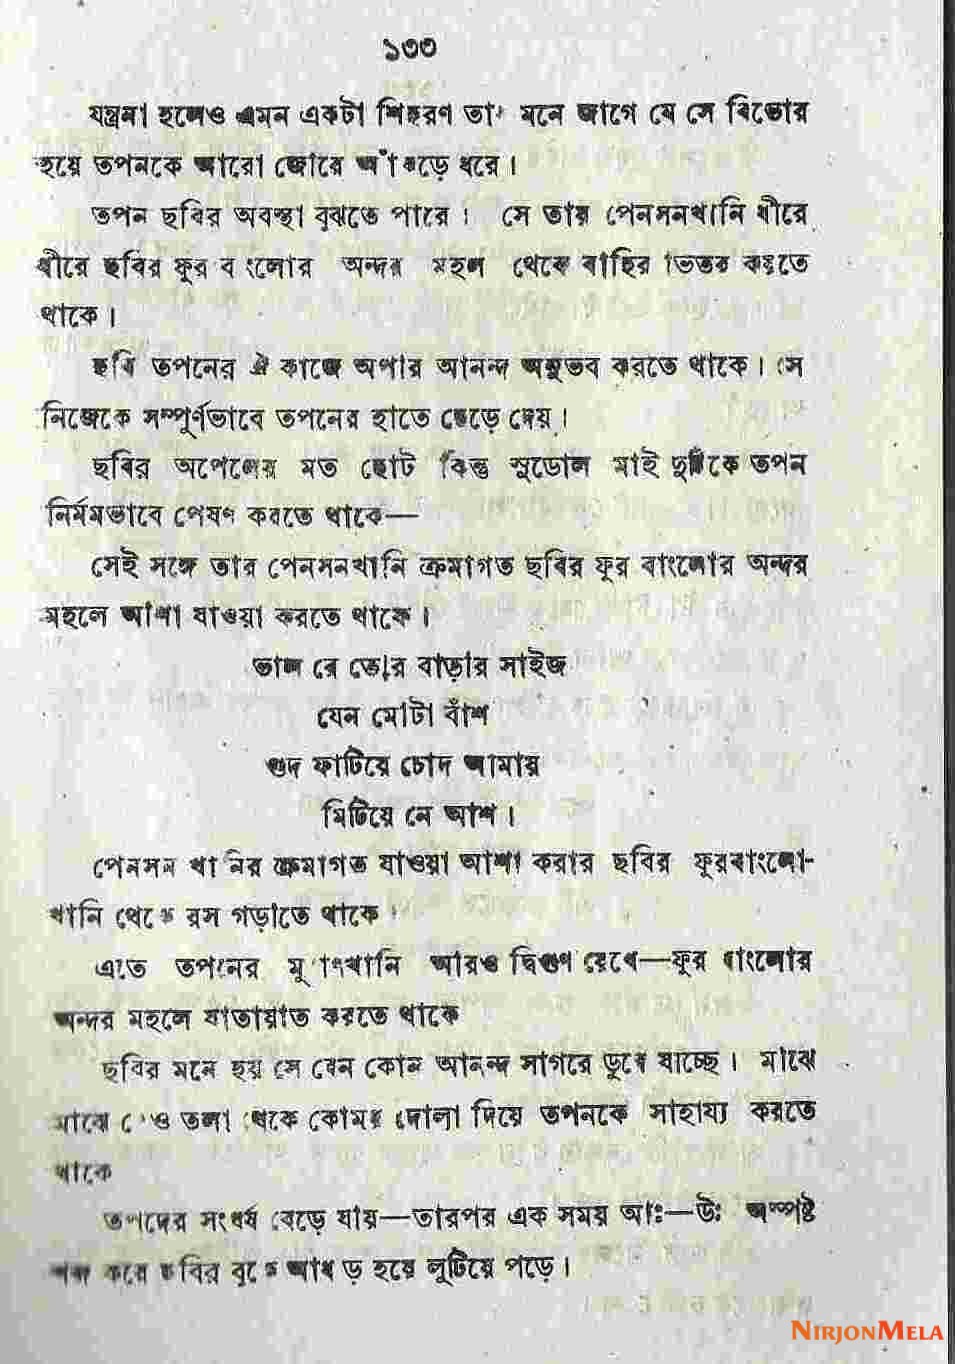 ১৩৩
যন্ত্রনা হলেও এমন একটা শিহরণ তার মনে জাগে যে সে বিভোর
হয়ে তপনকে আরো জোরে আঁকড়ে ধরে।
তপন ছবির অবস্থা বুঝতে পারে। সে তার পেনসনখানি ধীরে
ধীরে ছবির ফুর বাংলোর অন্দর মহল থেকে বাহির ভিতর করতে
থাকে।
ছবি তপনের ঐ কাজে অপার আনন্দ অনুভব করতে থাকে। সে
নিজেকে সম্পুর্ণভাবে তপনের হাতে ছেড়ে দেয়।
ছবির আপেলের মত ছোট কিন্তু সুডোল মাই দুটিকে তপন
নির্মমভাবে পেষণ করতে থাকে—
সেই সঙ্গে তার পেনসনখানি ক্রমাগত ছবির ফুর বাংলোর অন্দর
মহলে আশা যাওয়া করতে থাকে।
ভাল রে তোর বাড়ার সাইজ
যেন মোটা বাঁশ
গুদ ফাটিয়ে চোদ আমায়
মিটিয়ে নে আশ।
পেনসন খানির ক্রমাগত যাওয়া আশা করার ছবির ফুরবাংলো-
খানি থেকে রস গড়াতে থাকে।
এতে তপনের আরও দ্বিগুণ বেগে—ফুর বাংলোর
অন্দর মহলে যাতায়াত করতে থাকে
ছবির মনে হয় সে যেন কোন আনন্দ সাগরে ডুবে যাচ্ছে। মাঝে
মাঝে সেও তলা থেকে কোমর দোলা দিয়ে তপনকে সাহায্য করতে
থাকে
তপদের সংঘর্ষ বেড়ে যায়—তারপর এক সময় আঃ—উঃ অস্পষ্ট
শব্দ করে ছবির বুকে হয়ে লুটিয়ে পড়ে।
NIRJONMELA